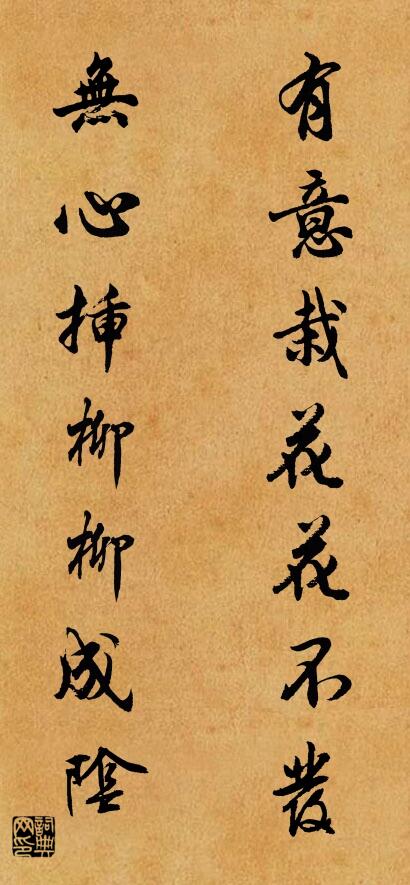 有意栽花花不發
無心插柳柳成陰
詞典网印